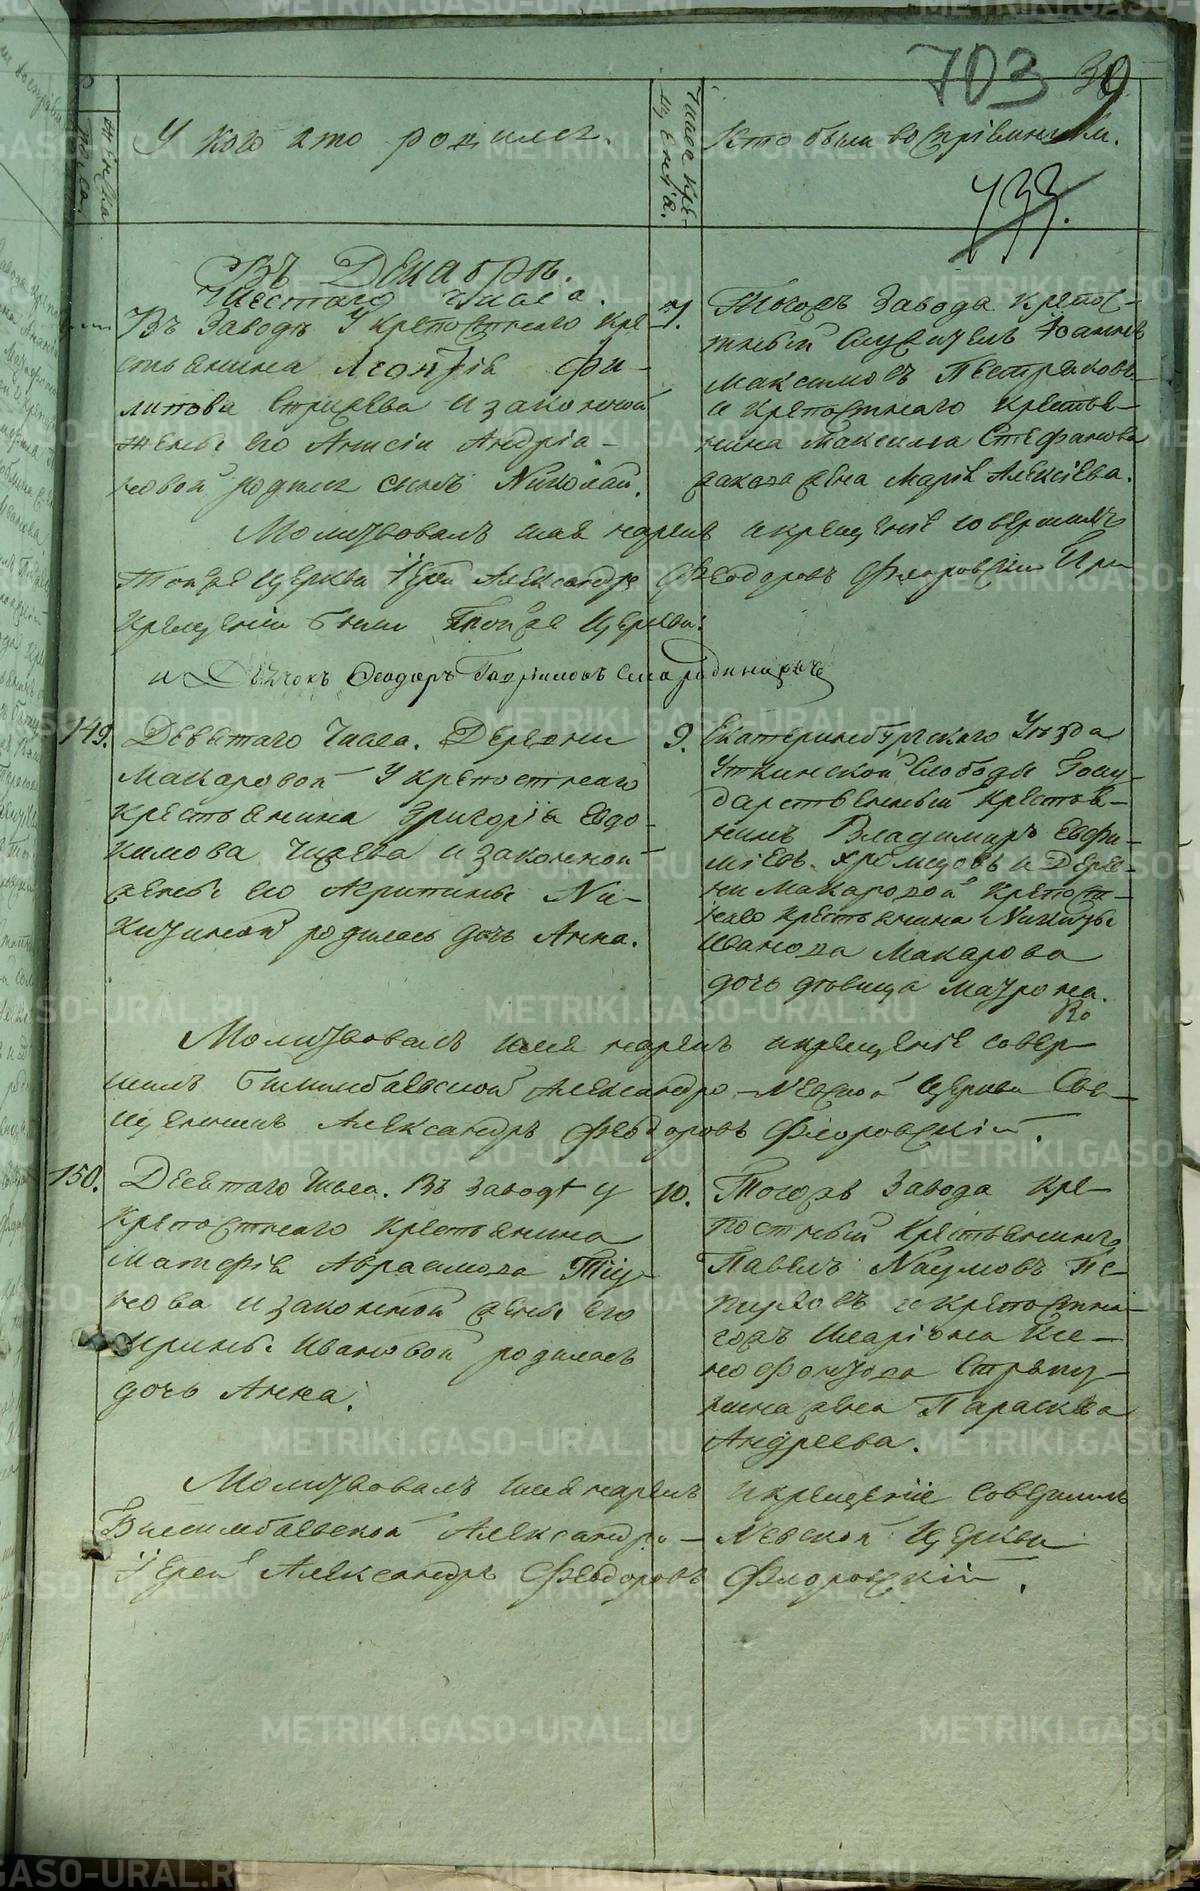 703 39
женска
пола.
У кого кто родился.
Числа Кре-
щенія.
Кто были восприемником.
733.
Въ Декабрѣ.
Шестаго числа.
Въ Заводѣ У крепостнаго кре
стьянина Леонтія Фи-
липова и законной
жены его Анисіи Андріа-
новой родился сынъ Николай.
7.
Тогожъ Завода крепос-
тный служитель Іоаннъ
Максимовъ Пестряковъ
и крепостнаго крестья-
нина Максима Стефанова
жена Марія Алексіева.
Молитвовалъ имя нарекъ и крещеніе совершилъ
Тоя же церкви Іерей Александръ Феодоровъ Флоровскій При
крещеніи были Тоя же Церкви:
и Дьячокъ Феодоръ Гавриловъ Смородинцовъ
149.
Девятаго Числа. Деревни
Макаровой У крепостнаго
крестьянина Григорія Евдо-
кимова и законной
жены его Агрипины Ни-
китиной родилась дочь Анна.
9.
Екатеринбургскаго Уѣзда
Уткинской Слободы Госу-
дарственный крестья-
нинъ Владимиръ Евфи-
міевъ Хромцовъ и Дере-
ни Макаровой крепост-
наго крестьянина Никиты
Иванова Макарова
дочь дѣвица Матрона.
Молитвовалъ имя нарекъ и крещеніе совер-
шилъ Билимбаевской Александро-Невской Церкви Свя-
щенникъ Александръ Феодоровъ Флоровскій.
150.
Девятаго Числа. Въ Заводѣ у
крепостнаго крестьянина
Матфія Авраамова Тіу-
нова и законной жены его
Ирины Ивановой родилась
дочь Анна.
10.
Тогожъ Завода кре-
постный крестьянинъ
Павелъ Наумовъ Пе-
пуловъ и крепостна-
гожъ Иларіона Ксе-
нофонтова Стряпу-
нина жена Параскева
Андреева.
Молитвовалъ имя нарекъ и крещеніе совершилъ
Билимбаевской Александро-Невской Церкви
Іерей Александръ Феодоровъ Флоровскій.
METRIKI.GASO-URAL.RU